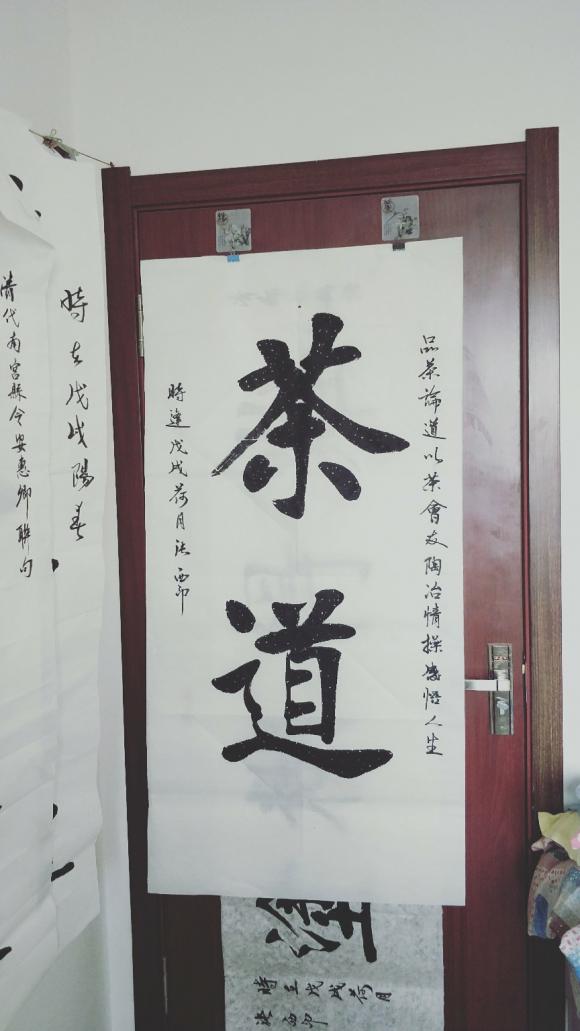 茶道
品茶論道以茶會友陶冶情操感悟人生
時逢戊戌荷月法西卬
時在戊戌陽春
清代南宮縣令安惠卿聯句
時在戊戌荷月
法西卬